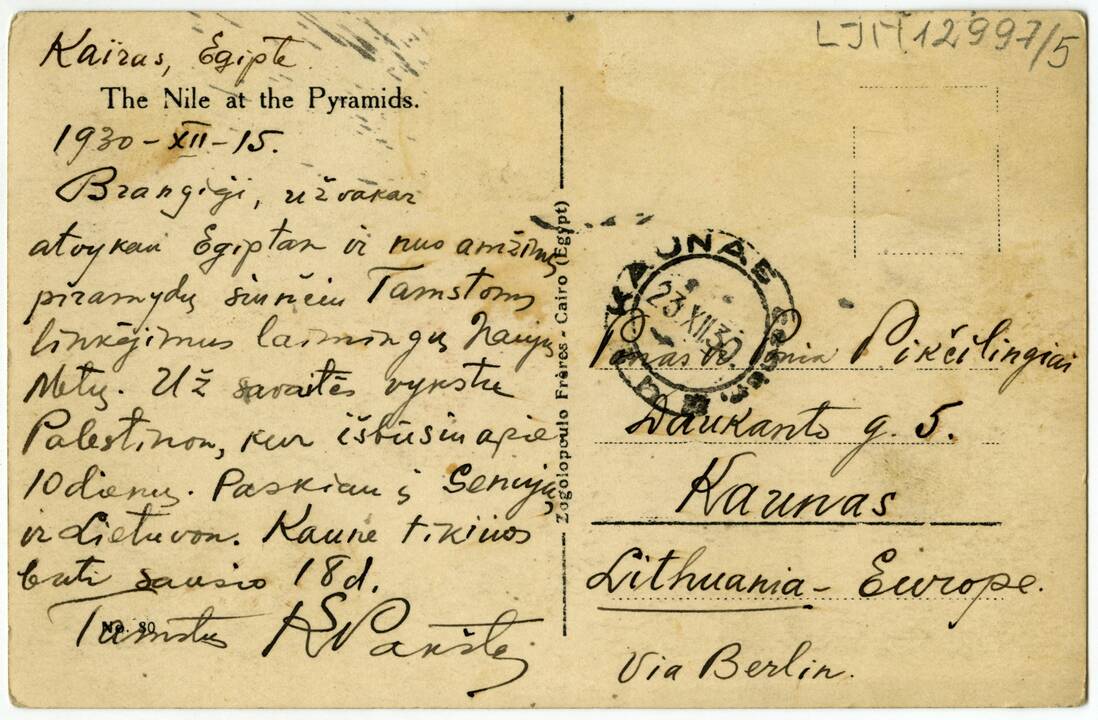 LJM 12997/5
Kairas, Egipte
The Nile at the Pyramids.
1930-XII-15.
Brangieji, užvakar
atvykau Egiptan ir nuo amžinų
piramydų siunčiu Tamstoms
linkėjimus laimingų Naujų
Metų. Už savaitės vykstu
Palestinon, kur išbūsiu apie
10 dienų. Paskiau į Seniują
ir Lietuvon. Kaune tikiuos
būti sausio 18 d.
Tamstų K Pakštas
No. 80
Zogolopoulo Frères - Cairo (Egypt)
KAUNAS
23 XII 30
Ponas ir Ponia Pikčilingiai
Daukanto g. 5.
Kaunas
Lithuania - Europe.
Via Berlin.